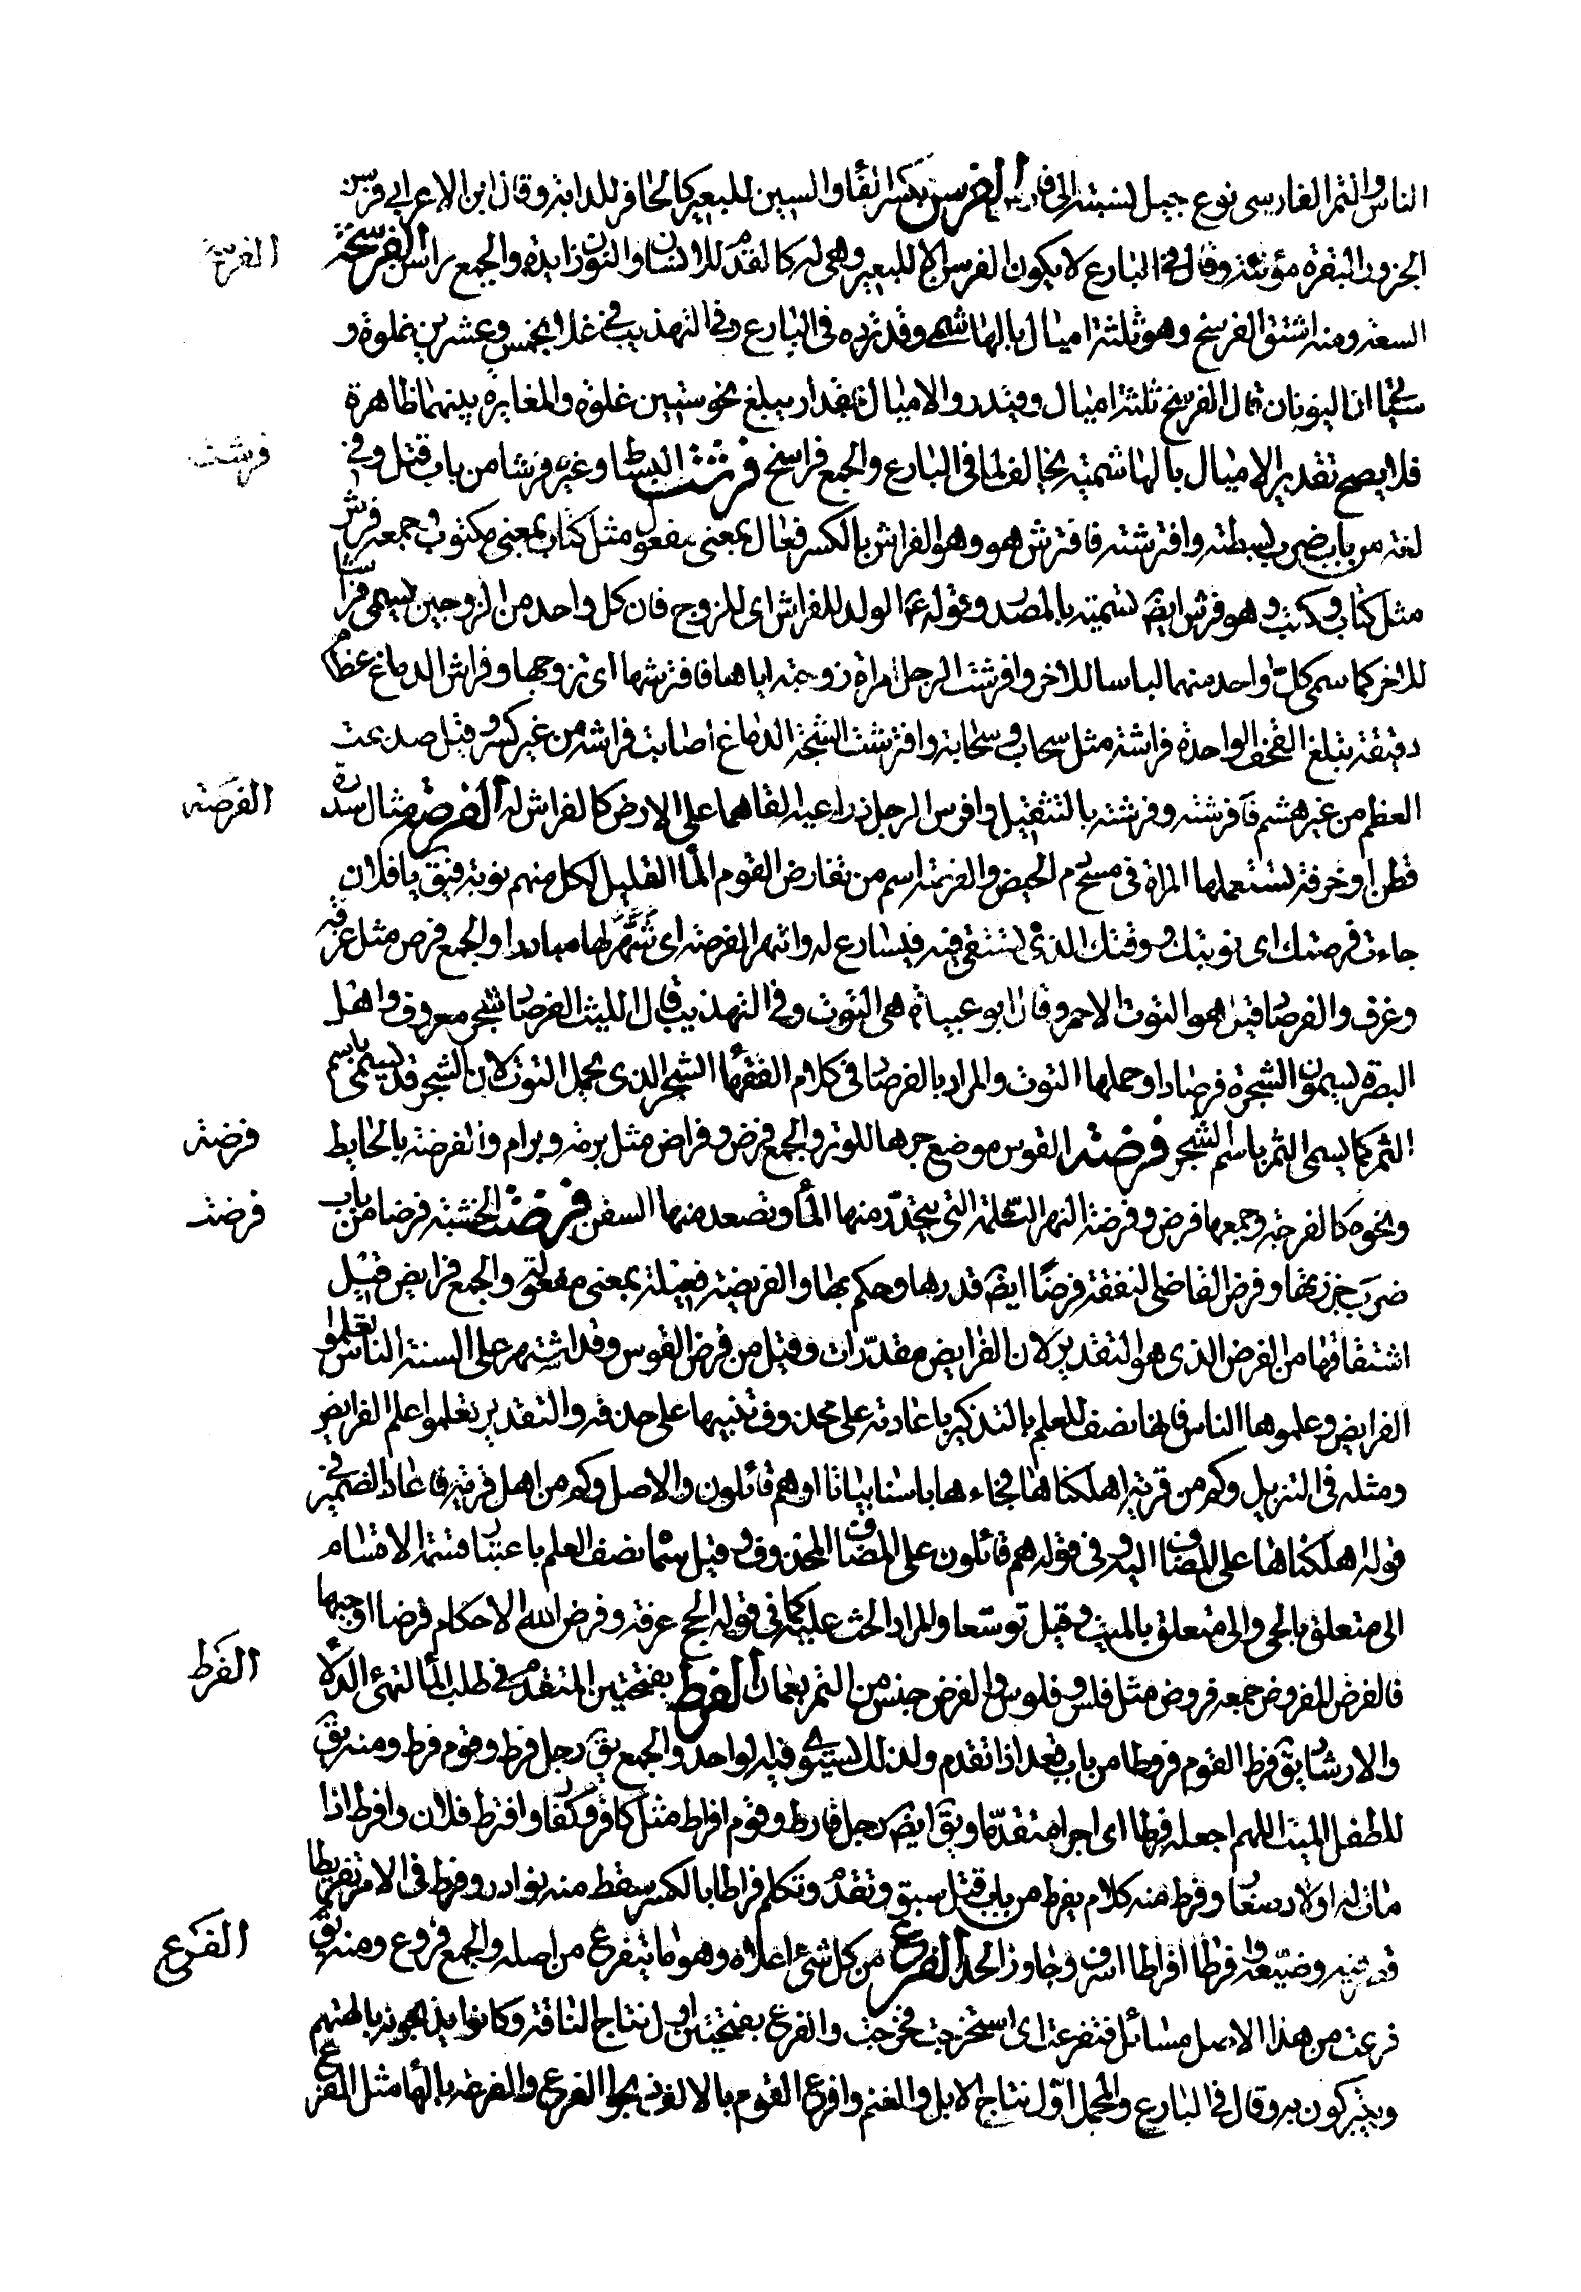 الناس والتمر الفارسي نوع جيد نسبته الى فارس الفرسن بكسر الفاء والسين للبعير كالحافر للدابة وقال ابن الاعرابي فرسن
الجزور والبقرة مؤنثة وقال في البارع لا يكون الفرسن الا للبعير وهي له كالقدم للانسان والنون زايدة والجمع فراسن الفرسخة
الفرسخة
السعة ومنه اشتق الفرسخ وهو ثلثة اميال بالهاشمي وقدرده في البارع وفي التهذيب في غلا بخمس وعشرين غلوة و
سيجئ ان اليونان قال الفرسخ ثلثة اميال وقدروا الاميال بمقدار يبلغ نحو ستين غلوة والمغايرة بينهما ظاهرة
فلا يصح تقدير الاميال بالهاشمية يخالف لما في البارع والجمع فراسخ فرشت البساط وغيره فرشا من باب قتل وفي
فرشت
لغة من باب ضرب بسطته وافترشته فافترش هو وهو الفراش بالكسر فعال بمعنى مفعول مثل كتاب بمعنى مكتوب وجمعه فرش
مثل كتاب وكتب وهو فرش ايض تسمية بالمصدر وقوله عم الولد للفراش اى للزوج فان كل واحد من الزوجين يسمى فراشا
للاخر كما سمى كل واحد منهما لباسا للاخر وافرشت الرجل امراة زوجته اياها فافترشها اى تزوجها وفراش الدماغ عظام
دقيقة تبلغ القحف الواحدة فراشة مثل سحاب وسحابة وافترشت الشجة الدماغ اصابت فراشه من غير كسر وقيل صدعت
العظم من غير هشم فافرشته وفرشته بالتثقيل وافرس الرجل ذراعيه القاهما على الارض كالفراش له الفرصة مثال سدرة
الفرصة
قطن او خرقة تستعملها المراة في مسح دم الحيض والفرصة اسم من تفارض القوم الماء القليل لكل منهم نوبة فيق يا فلان
جاءت فرصتك اى نوبتك ووقتك الذى تستقى فيه فيسارع له وانتهز الفرصة اى شمر لها مبادرا والجمع فرص مثل غرفة
وغرف والفرصاد قيل هو التوت الاحمر وقال ابو عبيدة هى التوت وفي التهذيب قال الليث الفرصاد شجر معروف واهل
البصرة يسمون الشجرة فرصادا وحملها التوت والمراد بالفرصاد في كلام الفقهاء الشجر الذى يحمل التوت لان الشجر قد يسمى باسم
الثمر كما يسمى الثمر باسم الشجر فرضة القوس موضع حزها للوتر والجمع فرض وفراض مثل برمة وبرام والفرضة بالحايط
فرضة
ونحوه كالفرجة وجمعها فرض وفرضة النهر الثلمة التي ينحدر منها الماء وتصعد منها السفن فرضت الخشبة فرضا من باب
فرضت
ضرب حززتها وفرض القاضى النفقة فرضا ايض قدرها وحكم بها والفريضة فعيلة بمعنى مفعولة والجمع فرايض قيل
اشتقاقها من الفرض الذى هو التقدير لان الفرايض مقدرات وقيل من فرض القوس وقد اشتهر على السنة الناس تعلموا
الفرايض وعلموها الناس فانها نصف العلم بالتذكير باعادته على محذوف تنبيها على حذفه والتقدير تعلموا علم الفرايض
ومثله في التنزيل وكم من قرية اهلكناها فجاءها باسنا بياتا او هم قائلون والاصل وكم من اهل قرية فاعاد الضمير في
قوله اهلكناها على المضاف اليه وفي قوله هم قائلون على المضاف المحذوف وقيل سماه نصف العلم باعتبار قسمة الاقسام
الى متعلق بالحي والى متعلق بالميت وقيل توسعا والمراد الحث عليه كما في قوله الحج عرفة وفرض الله الاحكام فرضا اوجبها
فالفرض المفروض جمعه فروض مثل فلس وفلوس والفرض جنس من التمر بعمان الفرط بفتحتين المتقدم في طلب الماء لتهئ الدلاء
الفرط
والارشاء يق فرط القوم فروطا من باب قعد اذا تقدم ولذلك يستوى فيه الواحد والجمع يق رجل فرط وقوم فرط ومنه يق
للطفل الميت اللهم اجعله فرطا اى اجرا متقدما ويق ايض رجل فارط وقوم افراط مثل كافر وكفار وافترط فلان وافرط اذا
مات له اولاد صغار وفرط منه كلام يفرط من باب قتل سبق وتقدم وتكلم فراطا بالكسر سقط منه بوادر وفرط في الامر تفريطا
قصر فيه وضيعه وافرط افراطا اسرف وجاوز الحد الفرع من كل شئ اعلاه وهو ما يتفرع من اصله والجمع فروع ومنه يق
الفرع
فرعت من هذا الاصل مسائل فتفرعت اى استخرجت فخرجت والفرع بفتحتين اول نتاج الناقة وكانوا يذبحونه بالهتهم
ويتبركون به وقال في البارع والمجمل اول نتاج الابل والغنم وافرع القوم بالالف ذبحوا الفرع والفرعة بالهاء مثل الفرع